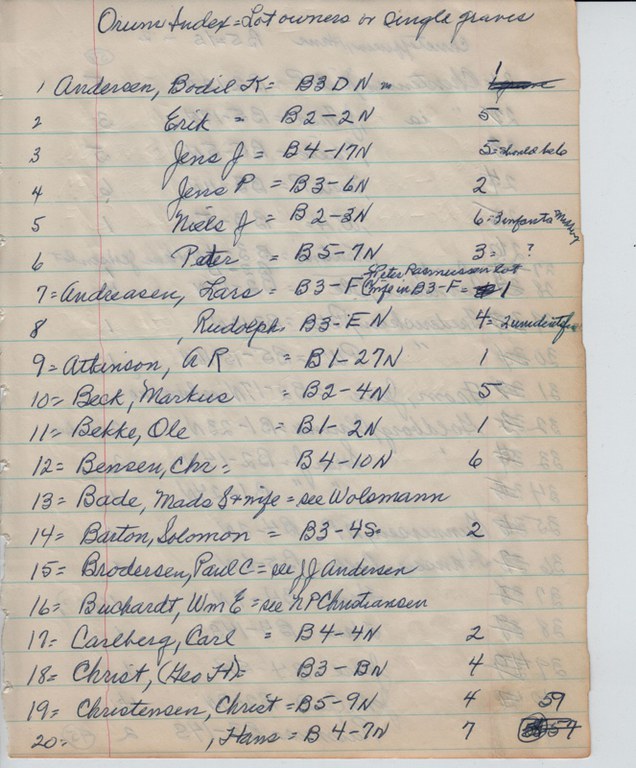 Orum Index = Lot owners or single graves
1 Andersen, Bodil K = B3 D N = 1
2 Erik = B2-2N 5
3 Jens J = B4-17N 5 = should be 6
4 Jens P = B3-6N 2
5 Niels J = B2-3N 6 = 3 infants Missing
6 Peter = B5-7N 3 = ?
7 = Andreasen, Lars = B3-F Peter Rasmussen lot in B3-F = 1
8 , Rudolph B3-E N 4 = 2 unidentified
9 = Atkinson, A R = B1-27N 1
10 = Beck, Markus = B2-4N 5
11 = Bekke, Ole = B1-2N 1
12 = Bensen, Chr = B4-10N 6
13 = Bade, Mads & wife = see Wolsmann
14 = Barton, Solomon = B3-4S 2
15 = Brodersen, Paul C = see J J Andersen
16 = Buchardt, Wm E = see N P Christiansen
17 = Carlberg, Carl = B4-4N 2
18 = Christ, (Geo H) = B3-BN 4
19 = Christensen, Christ = B5-9N 4 59
20 = , Hans = B4-7N 7 57